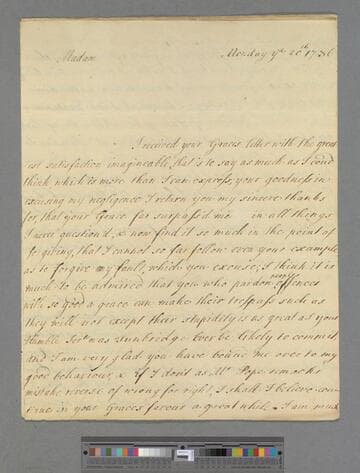 Madam
Monday ye 20th 1736
I received your Graces letter with the great
est satisfaction imagineable, that is to say as much as I could
think which is more than I can express, your goodness in
excusing my negligence I return you my sincere thanks
for, that your Grace far surpass'd me in all things
I never question'd, & now find it so much in the point of
forgiving, that I cannot so far follow even your example
as to forgive my fault, which you excuse; I think it is
much to be admired that you who pardon offences
with so good a grace can make their trespass such as
they will not except their stupidity is as great as your
Humble Servt was at tunbridge ever be likely to commit,
and I am very glad you have bound me over to my
good behaviour, & if I don't as Mr Pope remarks
mistake reverse of wrong for right, I shall I believe con
tinue in your Graces favour a great while. I am much